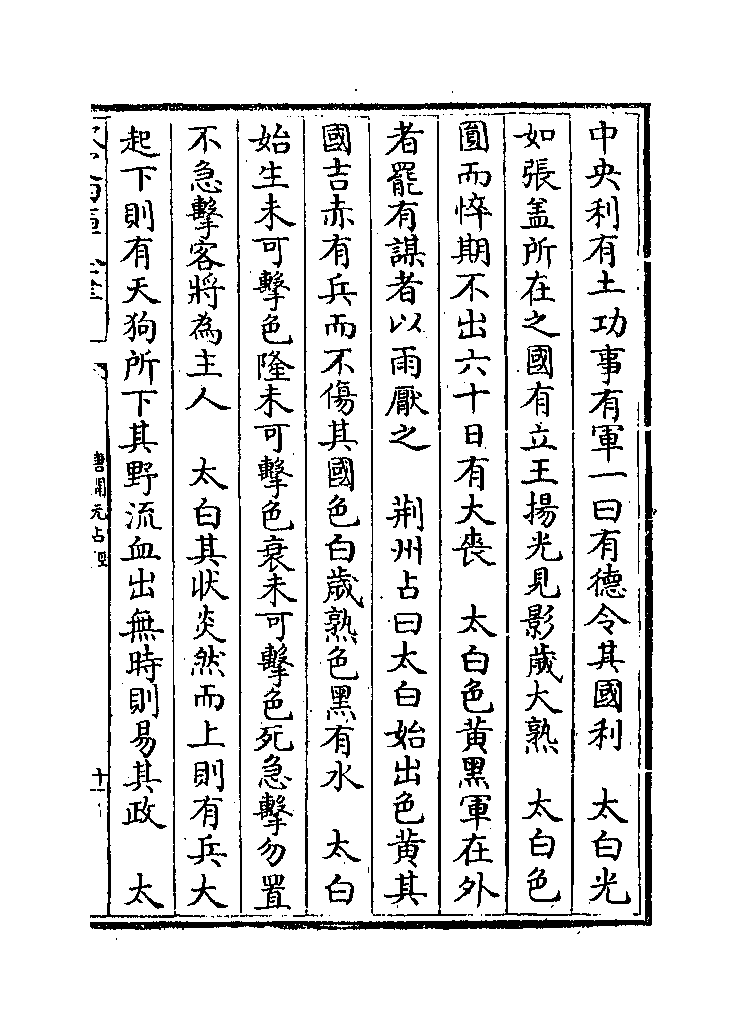 中央利有土功事有軍一曰有德令其國利　太白光
如張盖所在之國有立王揚光見影歲大熟　太白色
圓而悴期不出六十日有大喪　太白色黄黑軍在外
者罷有謀者以雨厭之　荆州占曰太白始出色黄其
國吉赤有兵而不傷其國色白歲熟色黑有水　太白
始生未可擊色隆未可擊色衰未可擊色死急擊勿置
不急擊客將為主人　太白其狀炎然而上則有兵大
起下則有天狗所下其野流血出無時則易其政　太
唐開元占經
十一